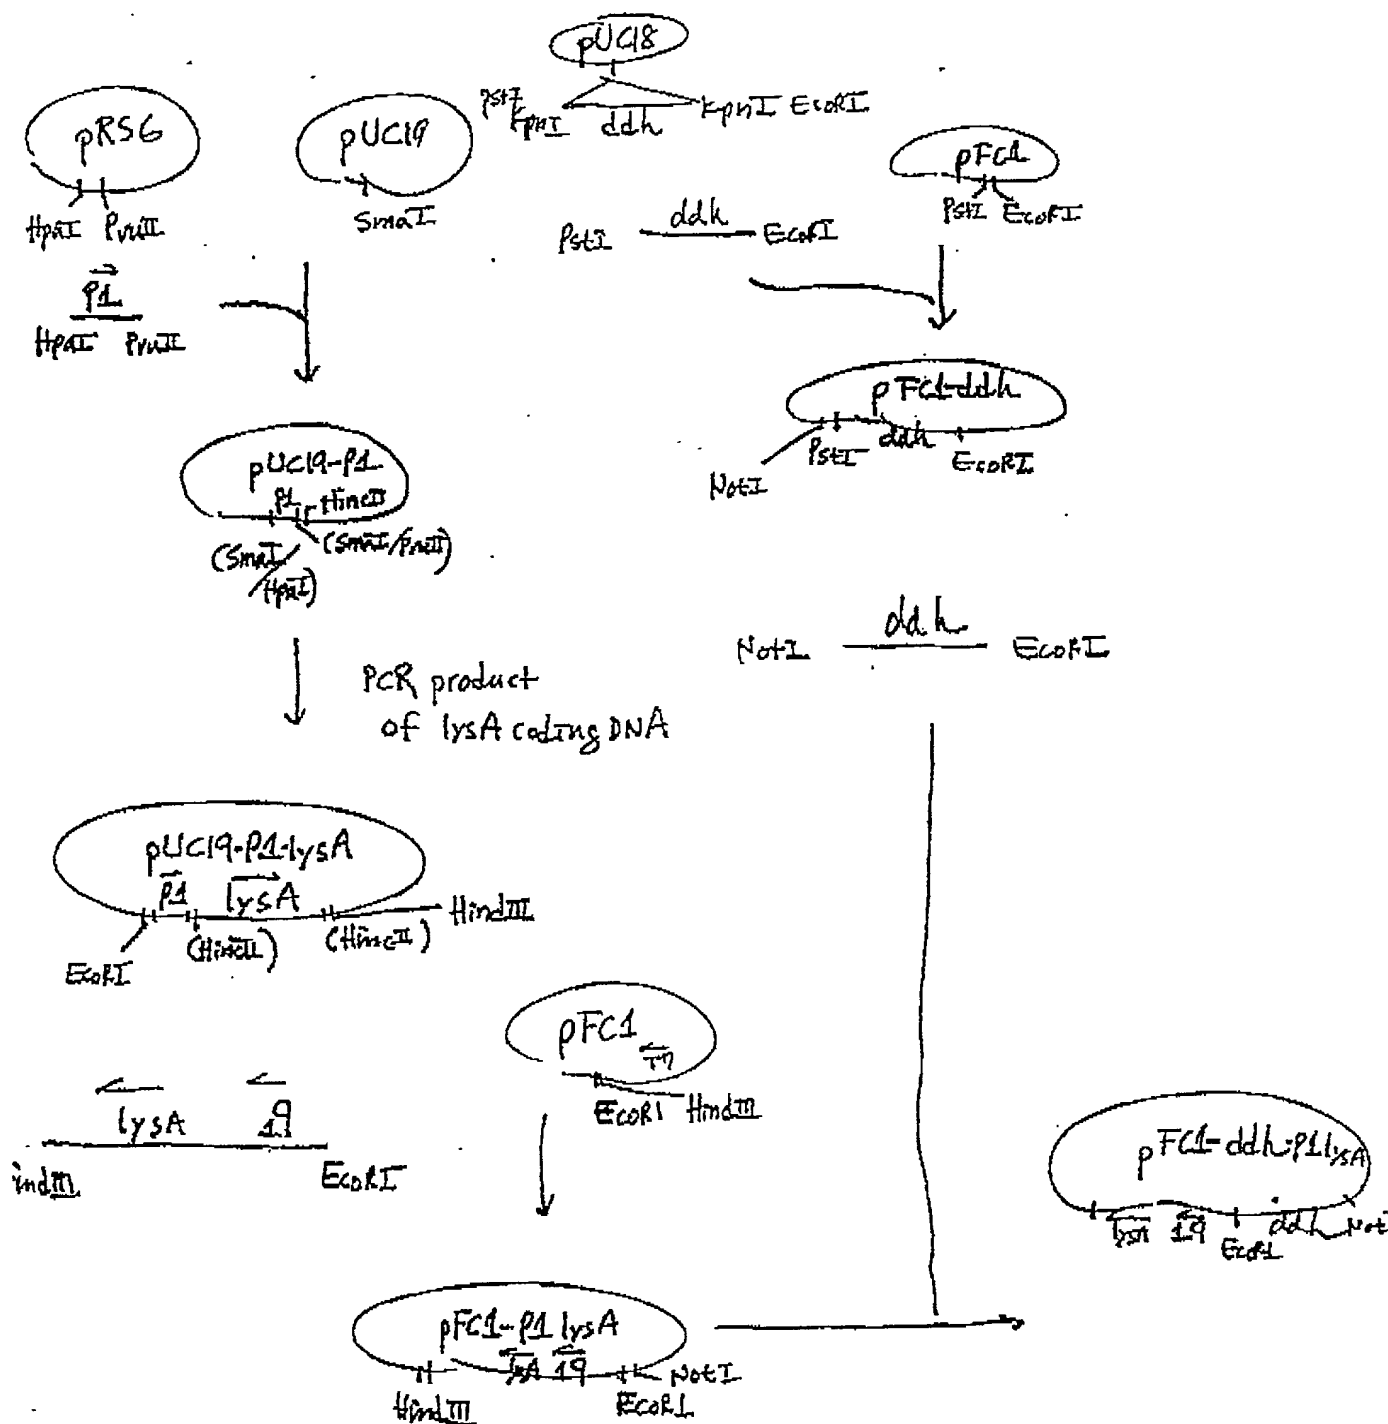 pUC18
pstI
KpnI ddh KpnI EcoRI
pRS6
pUC19
pFC1
HpaI PvuII
SmaI
PstI EcoRI
PstI ddh EcoRI
P1
HpaI PvuII
pFC1-ddh
NotI PstI ddh EcoRI
pUC19-P1
P1 HincII
(SmaI/HpaI)
(SmaI/PvuII)
NotI ddh EcoRI
PCR product
of lysA coding DNA
pUC19-P1-lysA
P1 lysA
EcoRI (HincII) (HincII) HindIII
pFC1
T7
EcoRI HindIII
lysA 1q
indIII EcoRI
pFC1-ddh-P1lysA
lysA 1q EcoRI ddh Not
pFC1-P1 lysA
lysA 1q
HindIII EcoRI NotI